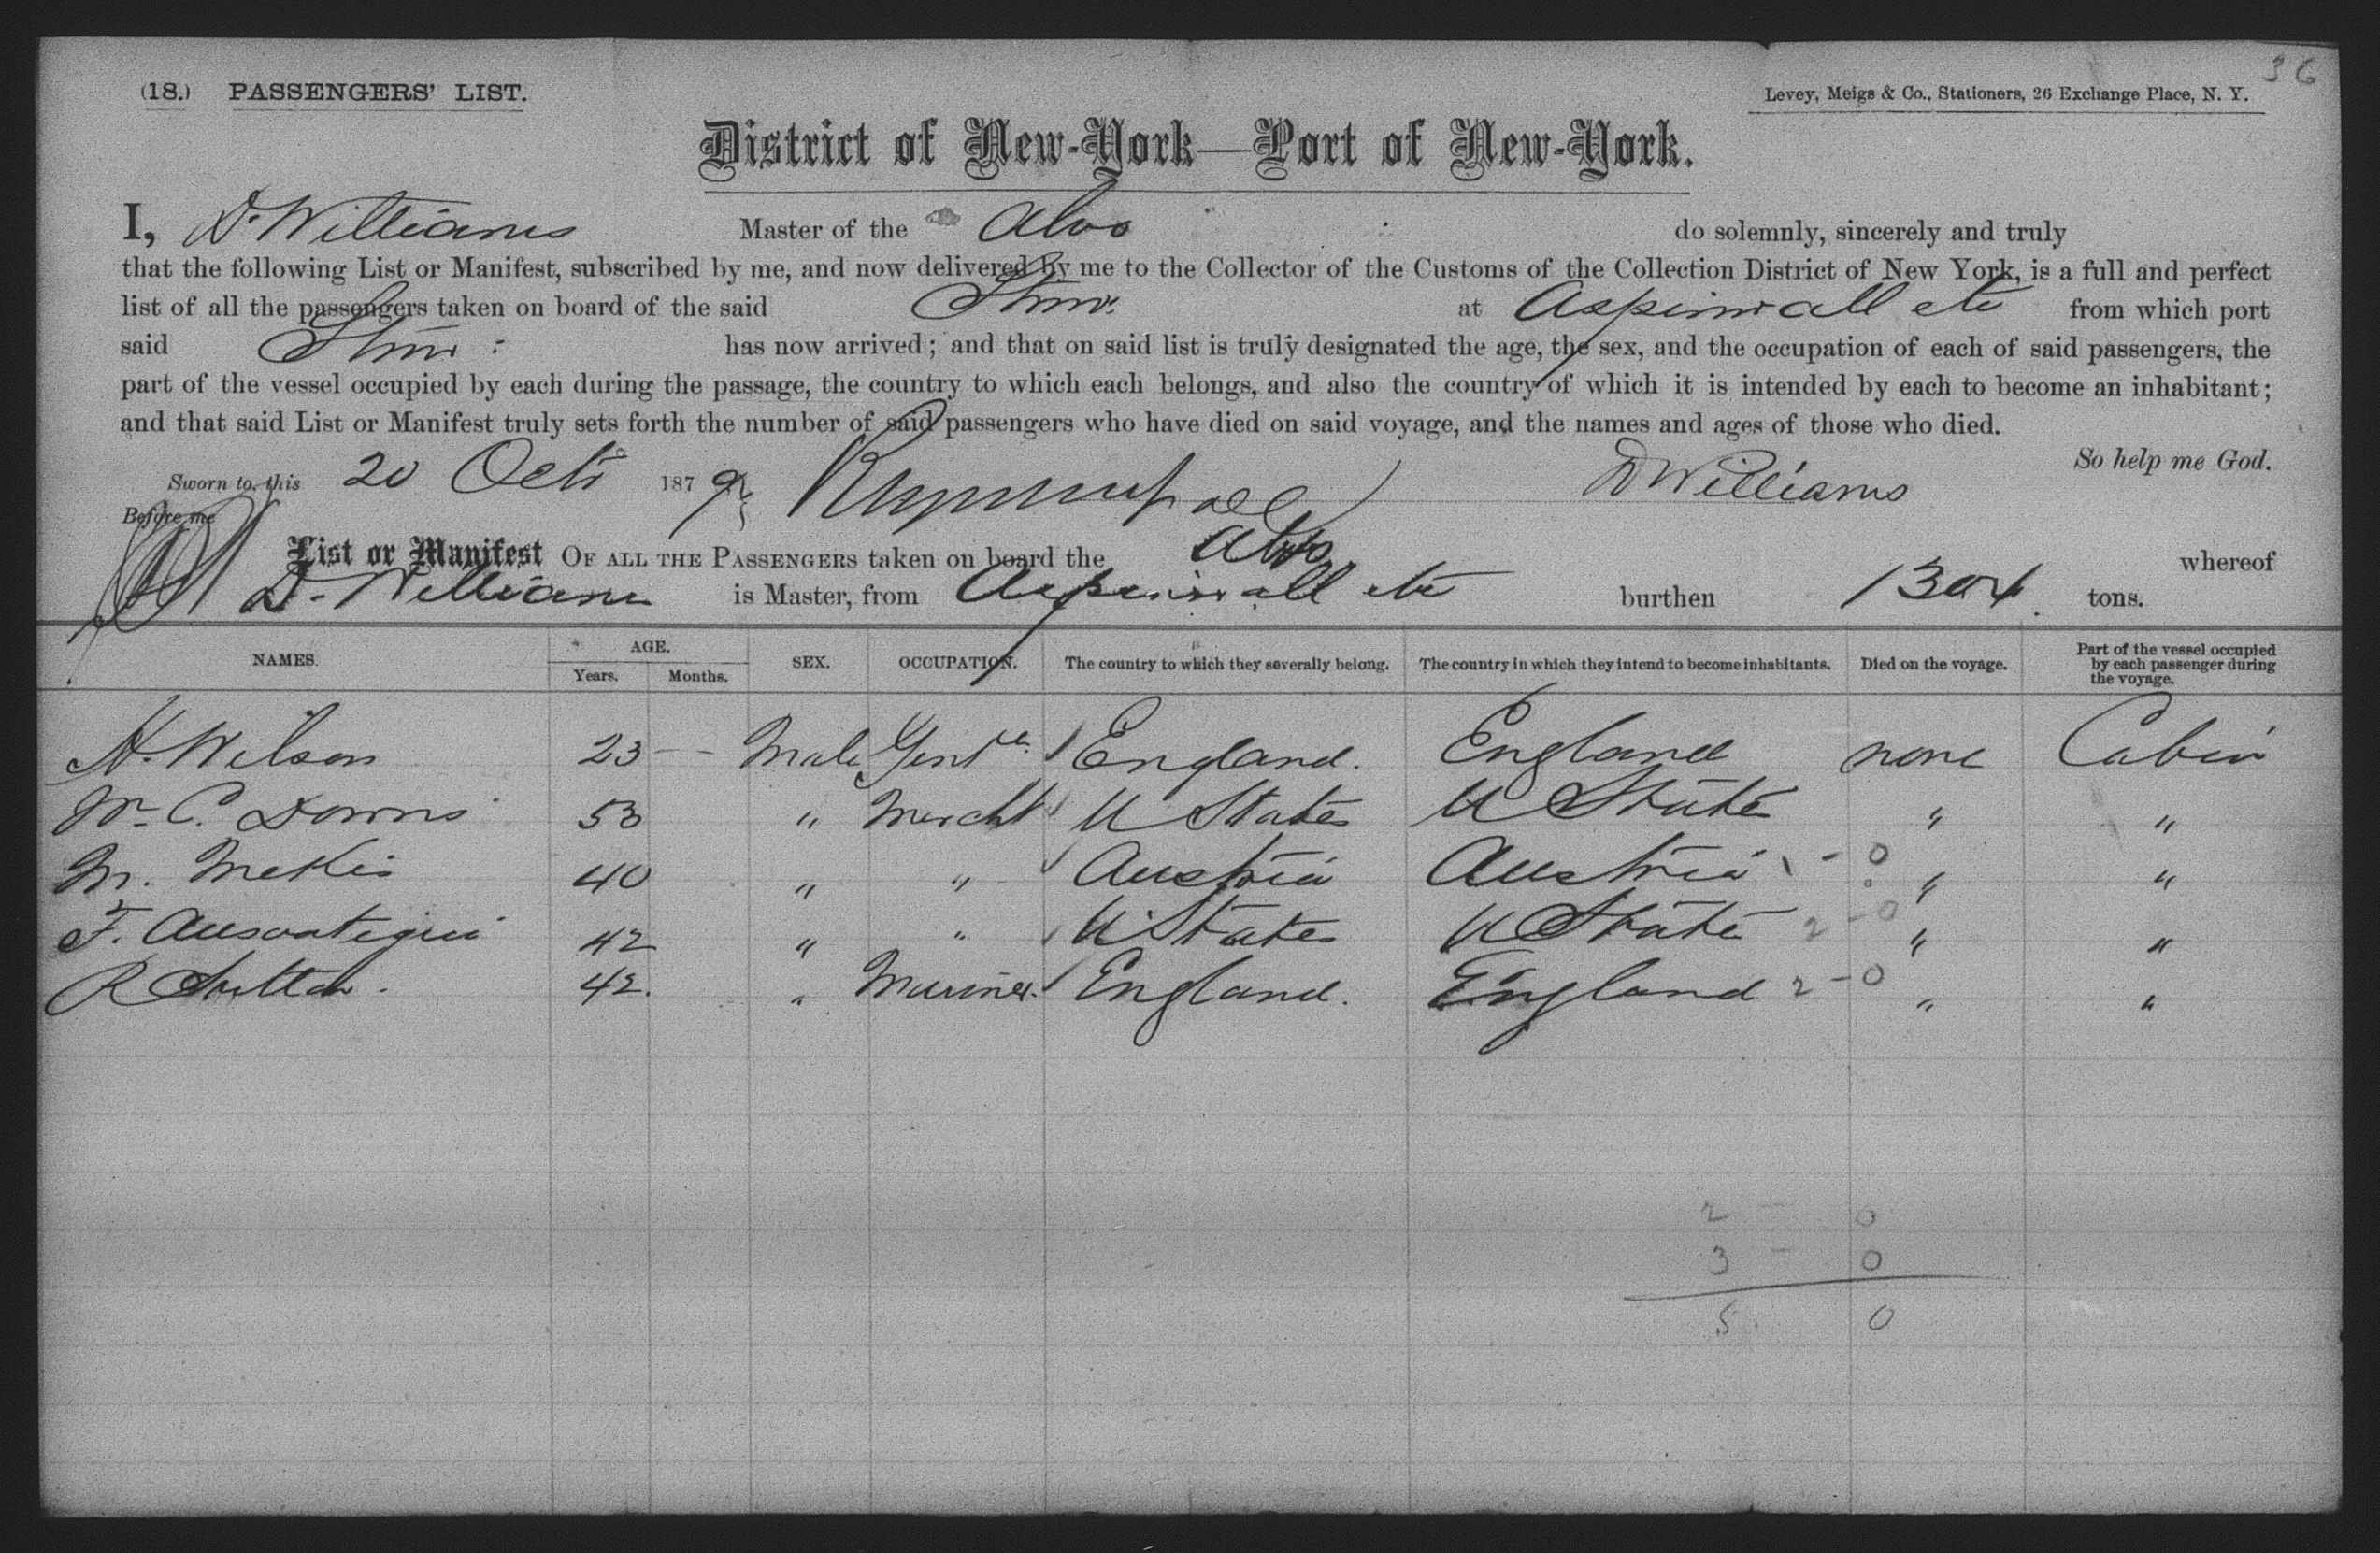 36
(18.) PASSENGERS' LIST. Levey, Meigs & Co., Stationers, 26 Exchange Place, N. Y.
District of New-York—Port of New-York.
I, D. Williams Master of the Alvo do solemnly, sincerely and truly
that the following List or Manifest, subscribed by me, and now delivered by me to the Collector of the Customs of the Collection District of New York, is a full and perfect
list of all the passengers taken on board of the said Stmr. at Aspinwall etc from which port
said Stmr: has now arrived; and that on said list is truly designated the age, the sex, and the occupation of each of said passengers, the
part of the vessel occupied by each during the passage, the country to which each belongs, and also the country of which it is intended by each to become an inhabitant;
and that said List or Manifest truly sets forth the number of said passengers who have died on said voyage, and the names and ages of those who died.
So help me God.
Sworn to, this 20 Oct 1879 D Williams
Before me
List or Manifest OF ALL THE PASSENGERS taken on board the Alvo whereof
D. Williams is Master, from Aspinwall etc burthen 1304 tons.
NAMES. AGE. Years. Months. SEX. OCCUPATION. The country to which they severally belong. The country in which they intend to become inhabitants. Died on the voyage. Part of the vessel occupied by each passenger during the voyage.
H. Wilson 23 — Male Gent England. England none Cabin
W. C. Downs 53 " Mercht U States U State " "
M. Mekis 40 " " Austria Austria - 0 " "
F. 42 " " U States U State 2 - 0 " "
R Sutton. 42. " Mariner. England. England 2 - 0 " "
2 - 0
3 - 0
5 0